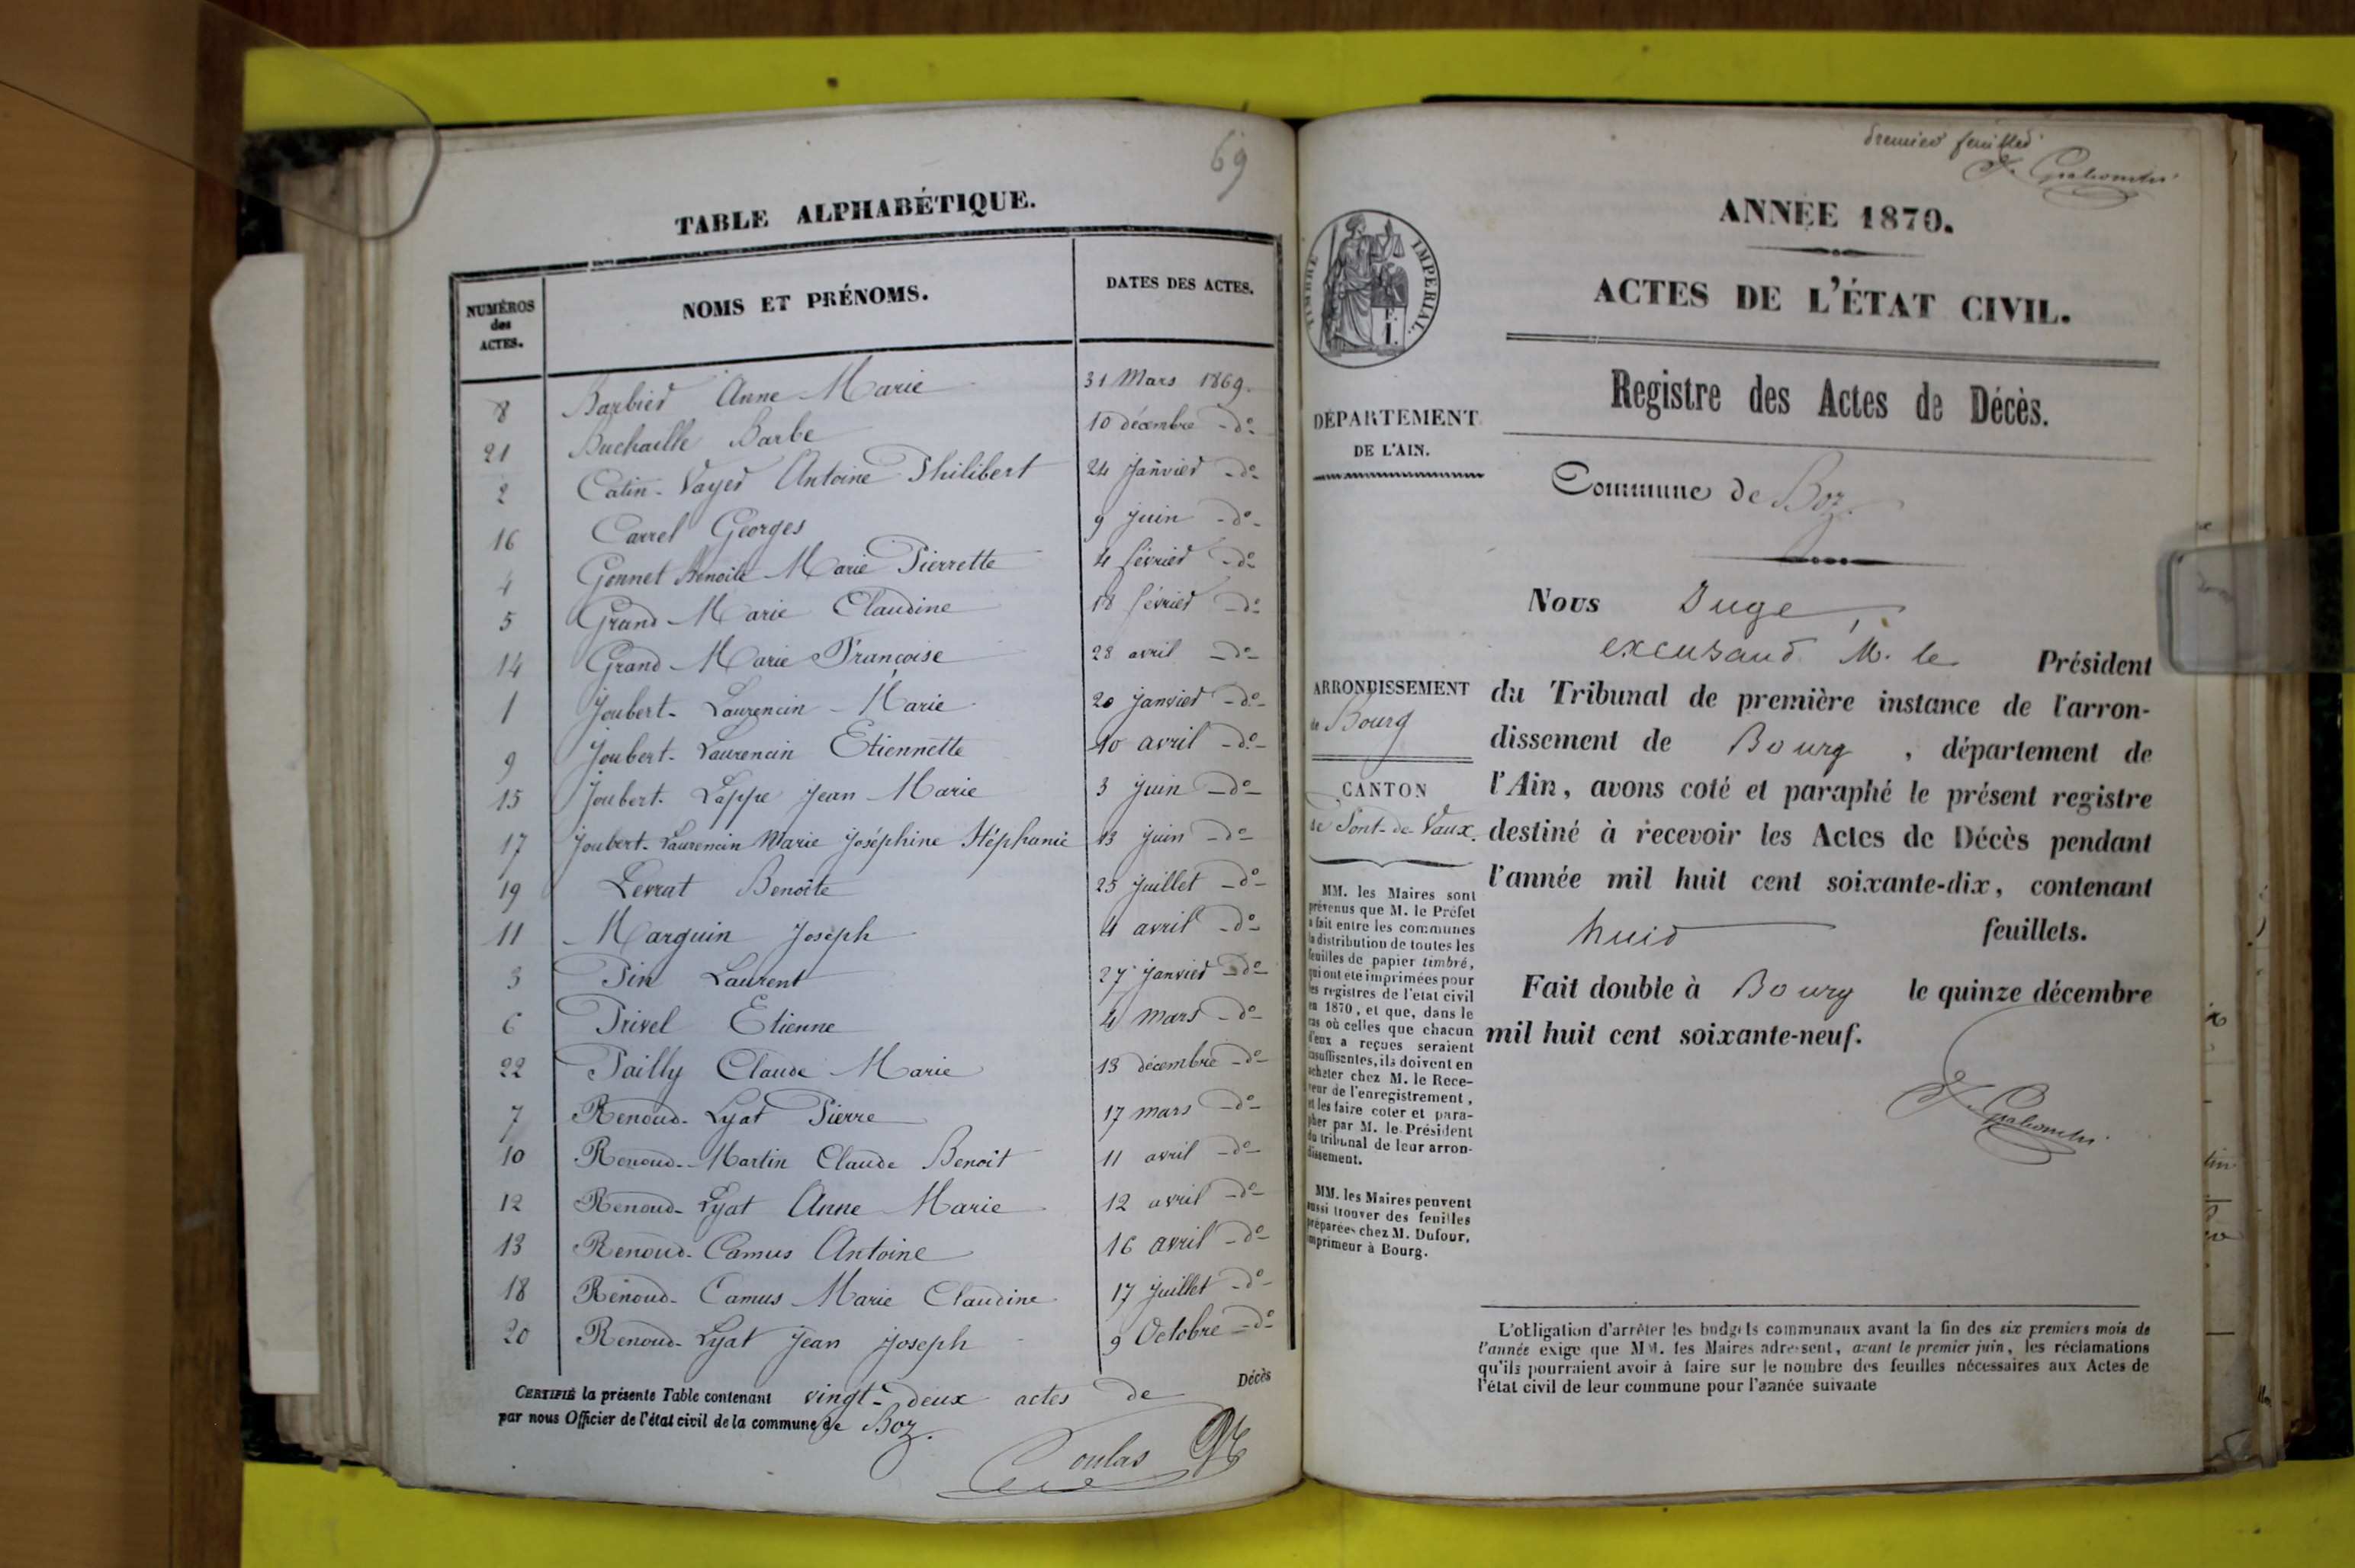 69
TABLE ALPHABÉTIQUE.
NUMÉROS des ACTES. NOMS ET PRÉNOMS. DATES DES ACTES.
8 Barbier Anne Marie 31 Mars 1869.
21 Buchaille Barbe 10 décembre -d°-
2 Catin-Vayer Antoine Philibert 24 Janvier -d°-
16 Carrel Georges 9 Juin -d°-
4 Gonnet Benoite Marie Pierrette 4 février -d°-
5 Grand Marie Claudine 18 février -d°-
14 Grand Marie Françoise 28 avril -d°-
1 Joubert-Laurencin Marie 20 janvier -d°-
9 Joubert-Laurencin Etiennette 10 avril -d°-
15 Joubert-Lappe Jean Marie 3 juin -d°-
17 Joubert-Laurencin Marie Joséphine Stéphanie 13 juin -d°-
19 Levrat Benoîte 25 juillet -d°-
11 Marguin Joseph 4 avril -d°-
3 Pin Laurent 27 janvier -d°-
6 Privel Etienne 4 mars -d°-
22 Pailly Claude Marie 13 décembre -d°-
7 Renoud-Lyat Pierre 17 mars -d°-
10 Renoud-Martin Claude Benoit 11 avril -d°-
12 Renoud-Lyat Anne Marie 12 avril -d°-
13 Renoud-Camus Antoine 16 avril -d°-
18 Renoud-Camus Marie Claudine 17 juillet -d°-
20 Renoud-Lyat Jean Joseph 9 Octobre -d°-
CERTIFIÉ la présente Table contenant vingt-deux actes de Décès
par nous Officier de l'état civil de la commune de Boz.
premier feuillet
ANNÉE 1870.
ACTES DE L'ÉTAT CIVIL.
Registre des Actes de Décès.
Commune de Boz.
TIMBRE IMPERIAL.
DÉPARTEMENT
DE L'AIN.
ARRONDISSEMENT
de Bourg
CANTON
de Pont-de-Vaux.
MM. les Maires sont
prévenus que M. le Préfet
a fait entre les communes
la distribution de toutes les
feuilles de papier timbré,
qui ont été imprimées pour
les registres de l'etat civil
en 1870, et que, dans le
cas où celles que chacun
d'eux a reçues seraient
insuffisantes, ils doivent en
acheter chez M. le Rece-
veur de l'enregistrement,
et les faire coter et para-
pher par M. le Président
du tribunal de leur arron-
dissement.
MM. les Maires peuvent
aussi trouver des feuilles
préparées chez M. Dufour,
imprimeur à Bourg.
Nous Juge,
excusant M. le Président
du Tribunal de première instance de l'arron-
dissement de Bourg, département de
l'Ain, avons coté et paraphé le présent registre
destiné à recevoir les Actes de Décès pendant
l'année mil huit cent soixante-dix, contenant
huit feuillets.
Fait double à Bourg le quinze décembre
mil huit cent soixante-neuf.
L'obligation d'arrêter les budgets communaux avant la fin des six premiers mois de
l'année exige que MM. les Maires adressent, avant le premier juin, les réclamations
qu'ils pourraient avoir à faire sur le nombre des feuilles nécessaires aux Actes de
l'état civil de leur commune pour l'année suivante